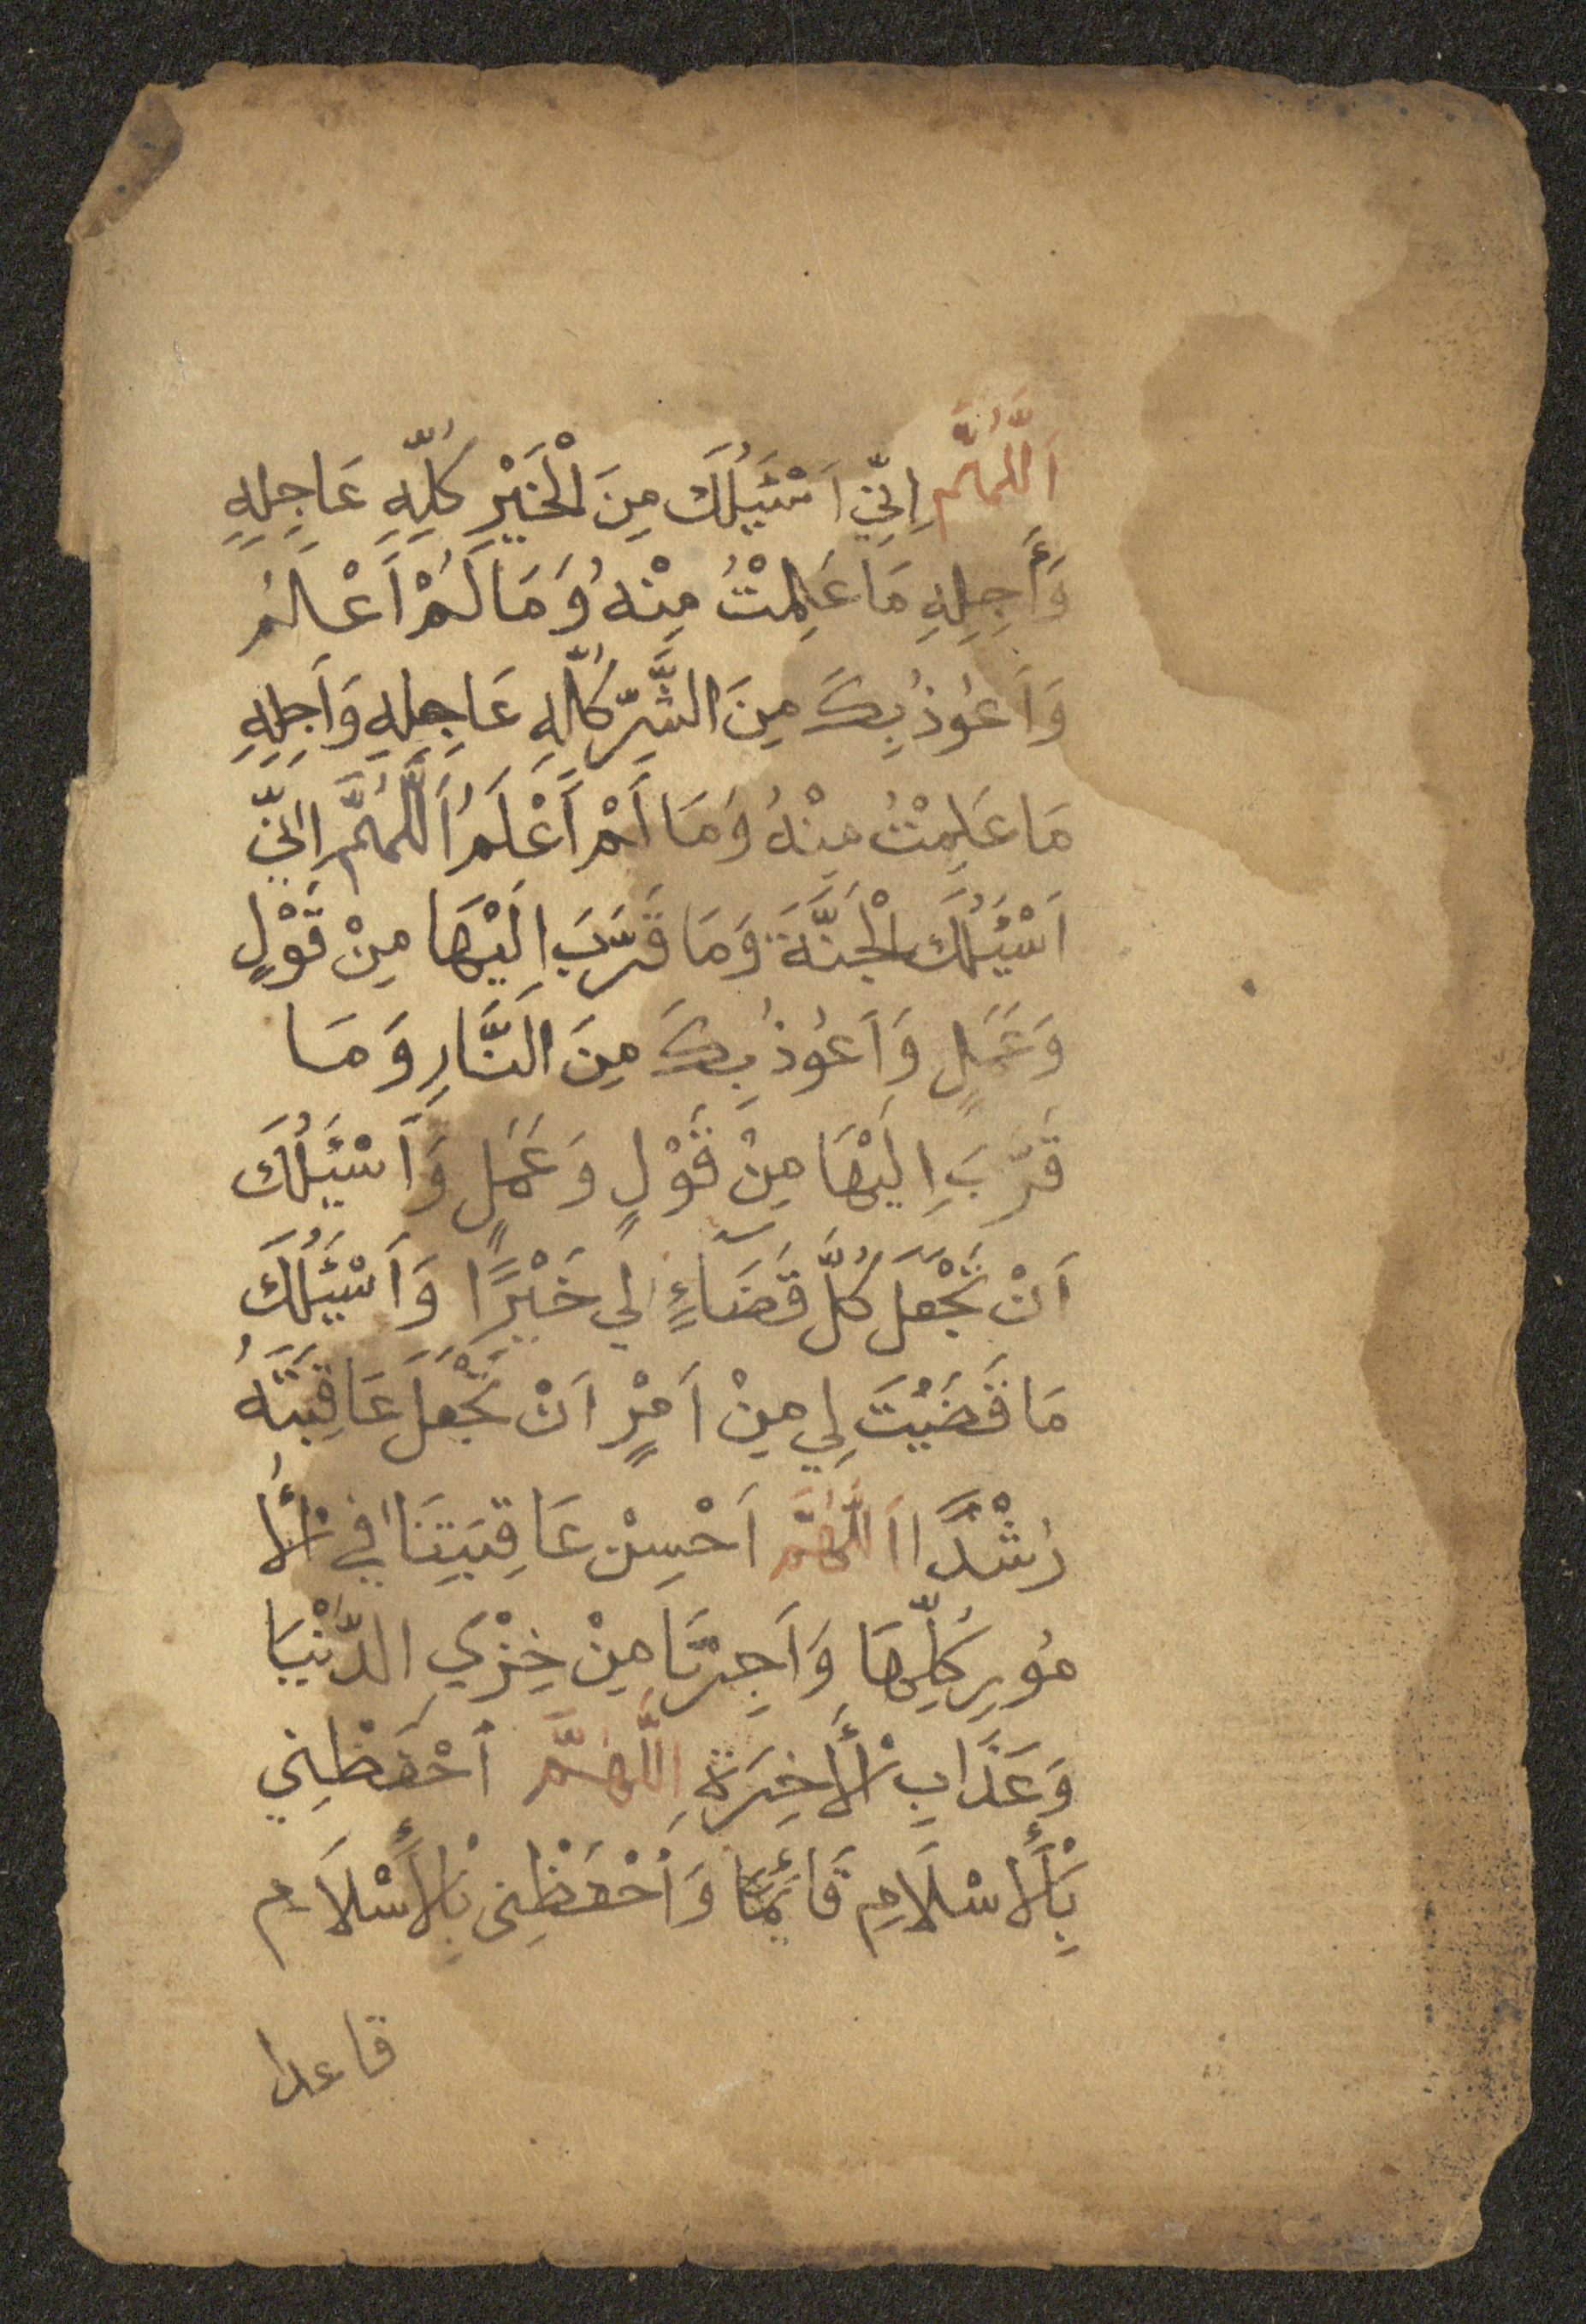 اَللّٰهُمَّ اِنِّي اَسْئَلُكَ مِنَ الْخَيْرِ كُلِّهِ عَاجِلِهِ
وَأَجِلِهِ مَا عَلِمْتُ مِنْهُ وَمَا لَمْ اَعْلَمُ
وَاَعُوْذُبِكَ مِنَ الشَّرِّ كُلِّهِ عَاجِلِهِ وَاَجِلِهِ
مَا عَلِمْتُ مِنْهُ وَمَا لَمْ اَعْلَمُ اَللّٰهُمَّ اِنِّي
اَسْئَلُكَ الْجَنَّةَ وَمَا قَرَّبَ اِلَيْهَا مِنْ قَوْلٍ
وَعَمَلٍ وَاَعُوْذُبِكَ مِنَ النَّارِ وَمَا
قَرَّبَ اِلَيْهَا مِنْ قَوْلٍ وَعَمَلٍ وَاَسْئَلُكَ
اَنْ تَجْعَلَ كُلَّ قَضَآءٍ لِي خَيْرًا وَاَسْئَلُكَ
مَا قَضَيْتَ لِي مِنْ اَمْرٍ اَنْ تَجْعَلَ عَاقِبَتَهُ
رُشْدًا اَللّٰهُمَّ اَحْسِنْ عَاقِبَتِنَا فِي الْأُ
مُورِ كُلِّهَا وَاَجِرْنَا مِنْ خِزْيِ الدُّنْيَا
وَعَذَابِ الْأَخِرَةِ اللّٰهُمَّ اَحْفَظْنِي
بِالْأَسْلَامِ قَائِمًا وَاَحْفَظْنِي بِالْأَسْلَامِ
قاعدا